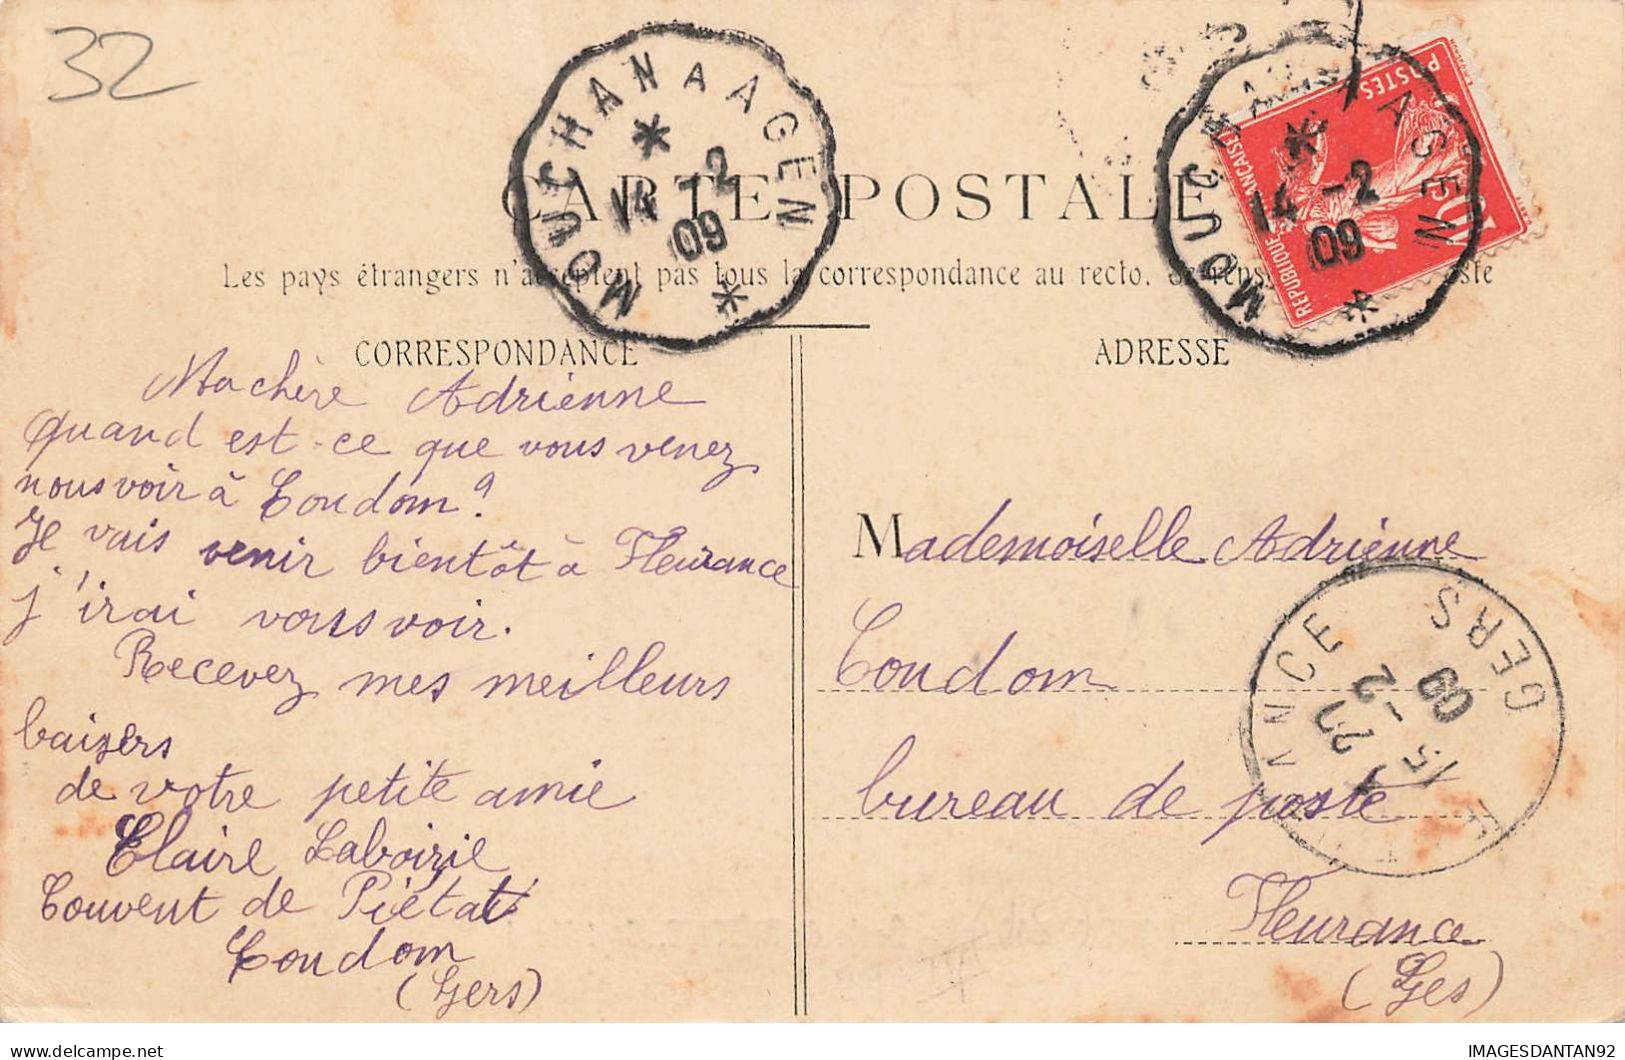 32
MOUCHAN A AGEN
14 -2
09
CARTE POSTALE
RÉPUBLIQUE FRANÇAISE
POSTES
10
MOUC AGEN
14 -2
09
Les pays étrangers n'acceptent pas tous la correspondance au recto.
CORRESPONDANCE
ADRESSE
Ma chère Adrienne
Quand est-ce que vous venez
nous voir à Condom ?
Je vais venir bientôt à Fleurance
j'irai vous voir.
Recevez mes meilleurs
baisers
de votre petite amie
Claire Laboirie
Couvent de Piétat
Condom
(Gers)
Mademoiselle Adrienne
Condom
bureau de poste
Fleurance
(Ges)
ANCE GERS
15 -2
09
IMAGESDANTAN92